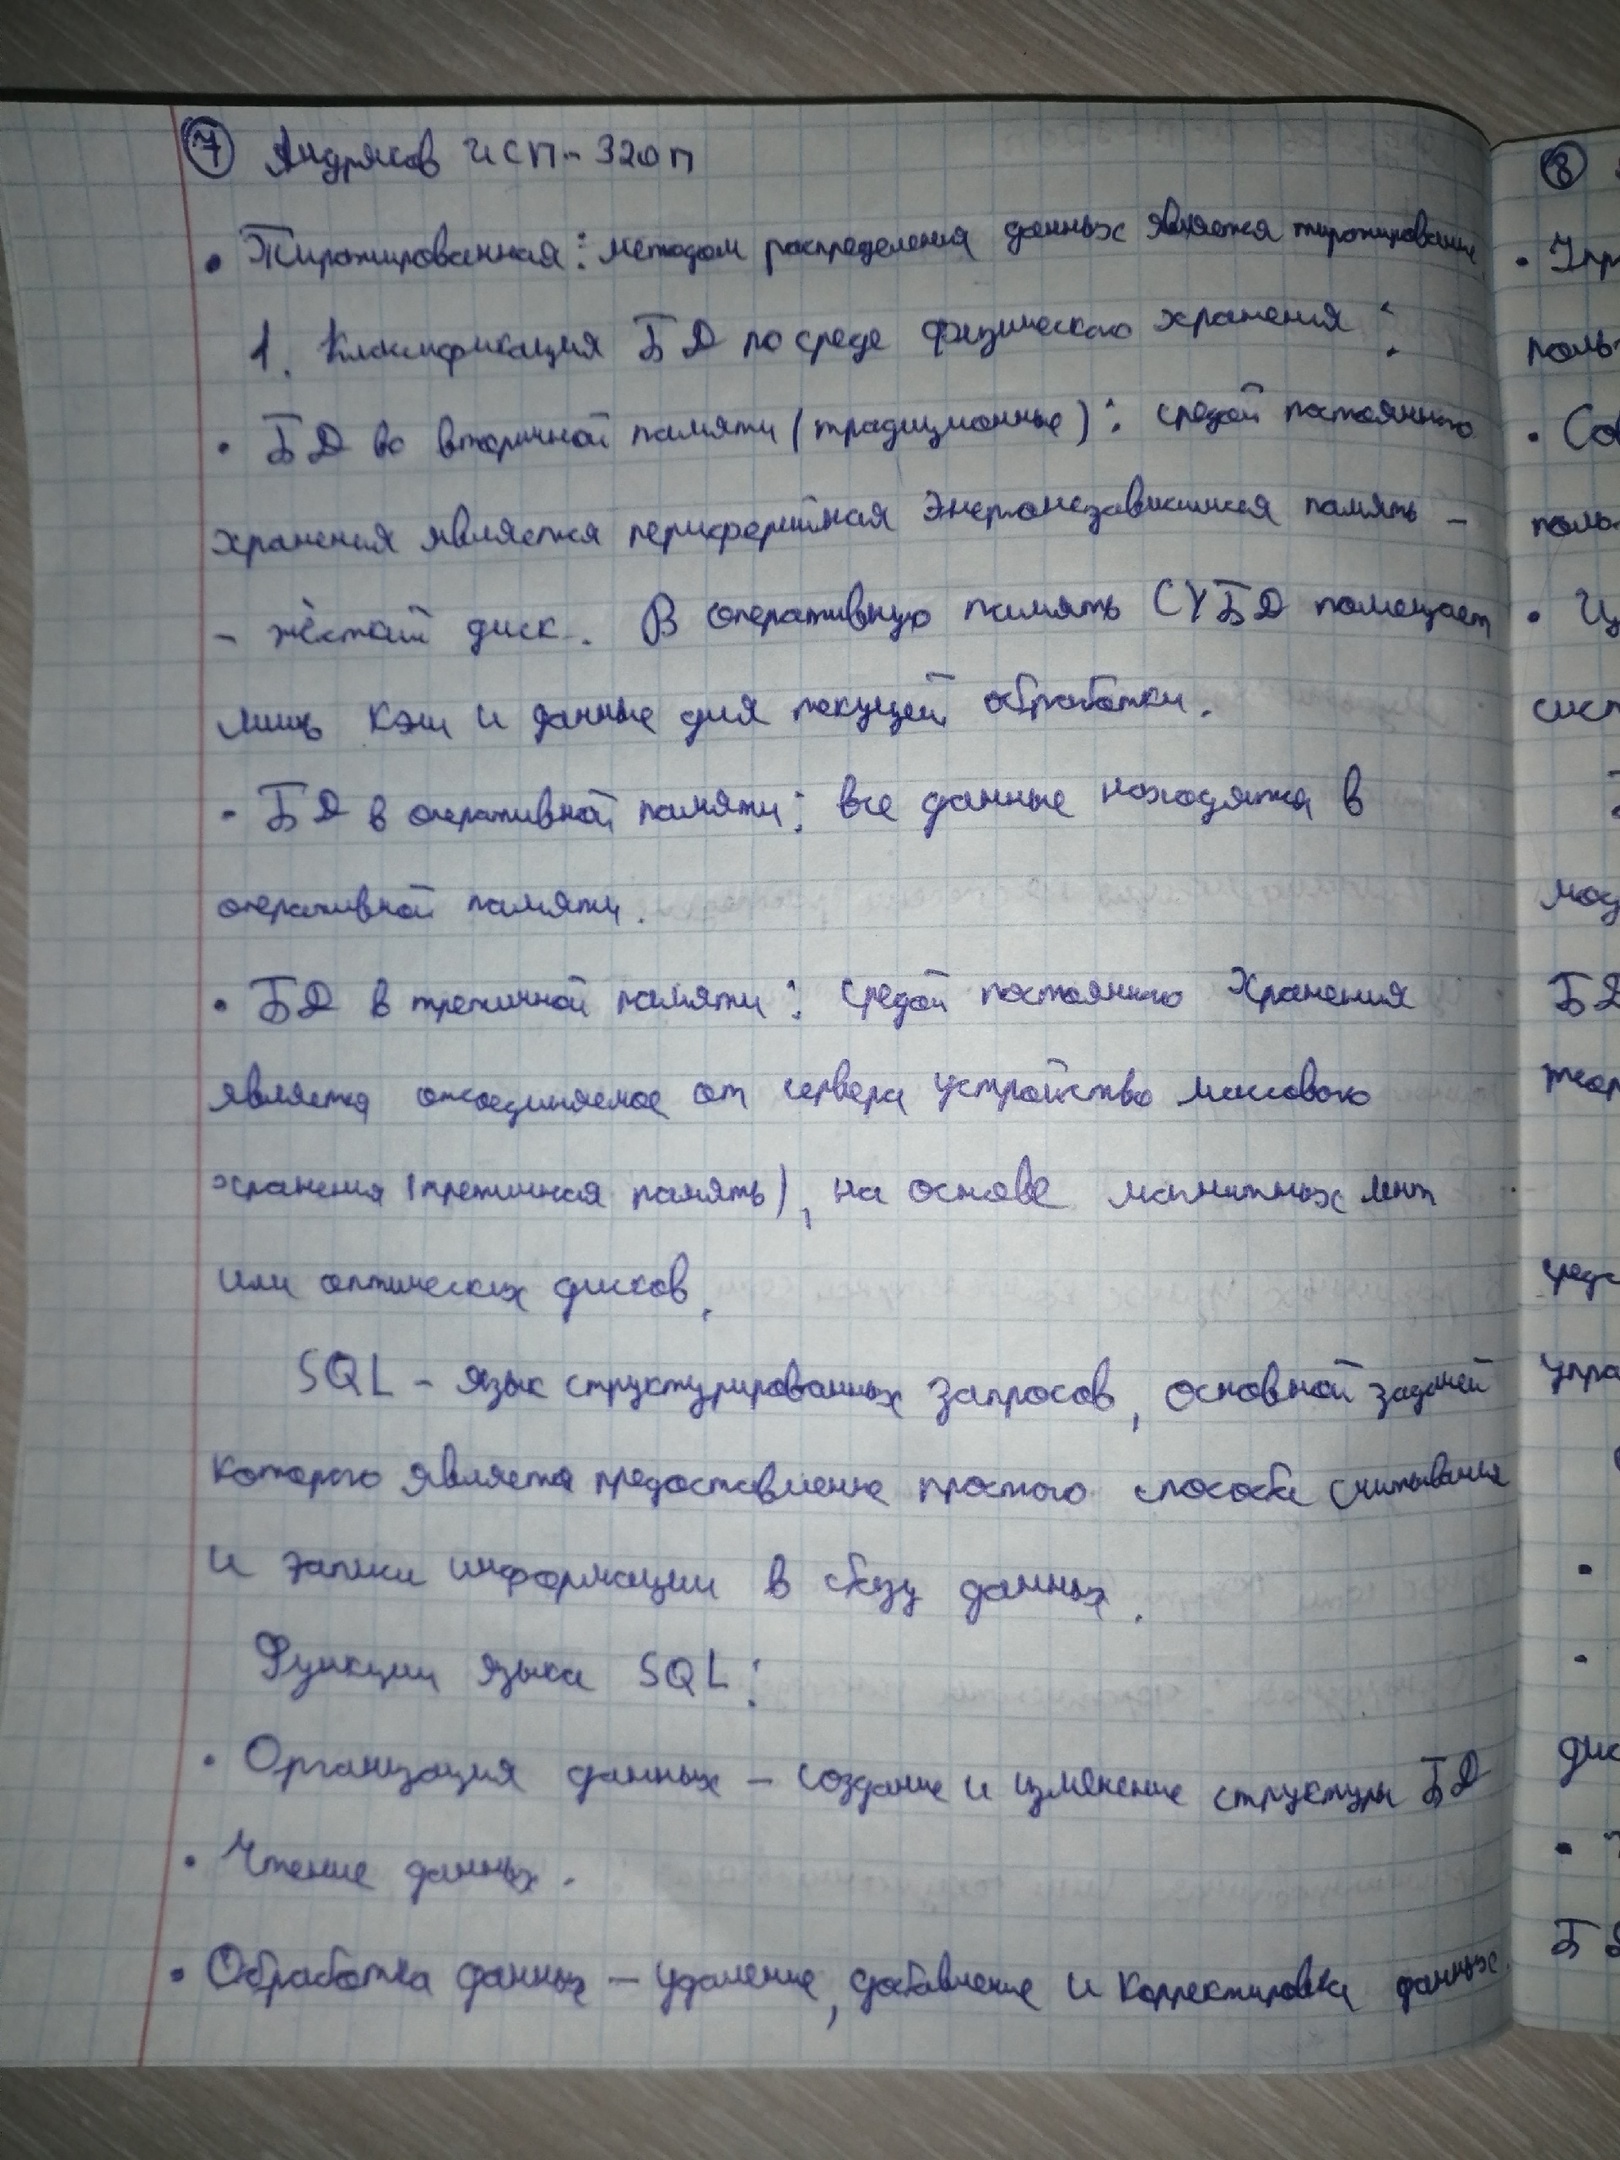 7 Андряков ИСП-320п
• Тиражированная: методом распределения данных является тиражирование
1. Классификация БД по среде физического хранения:
• БД во вторичной памяти (традиционные): средой постоянного
хранения является периферийная энергонезависимая память -
- жёсткий диск. В оперативную память СУБД помещает
лишь кэш и данные для текущей обработки.
- БД в оперативной памяти: все данные находятся в
оперативной памяти.
• БД в третичной памяти: средой постоянного хранения
является отсоединяемое от сервера устройство массового
хранения (третичная память), на основе магнитных лент
или оптических дисков.
SQL - язык структурированных запросов, основной задачей
которого является предоставление простого способа считывания
и записи информации в базу данных.
Функции языка SQL:
• Организация данных - создание и изменение структуры БД
• Чтение данных.
• Обработка данных - удаление, добавление и корректировка данных.
8